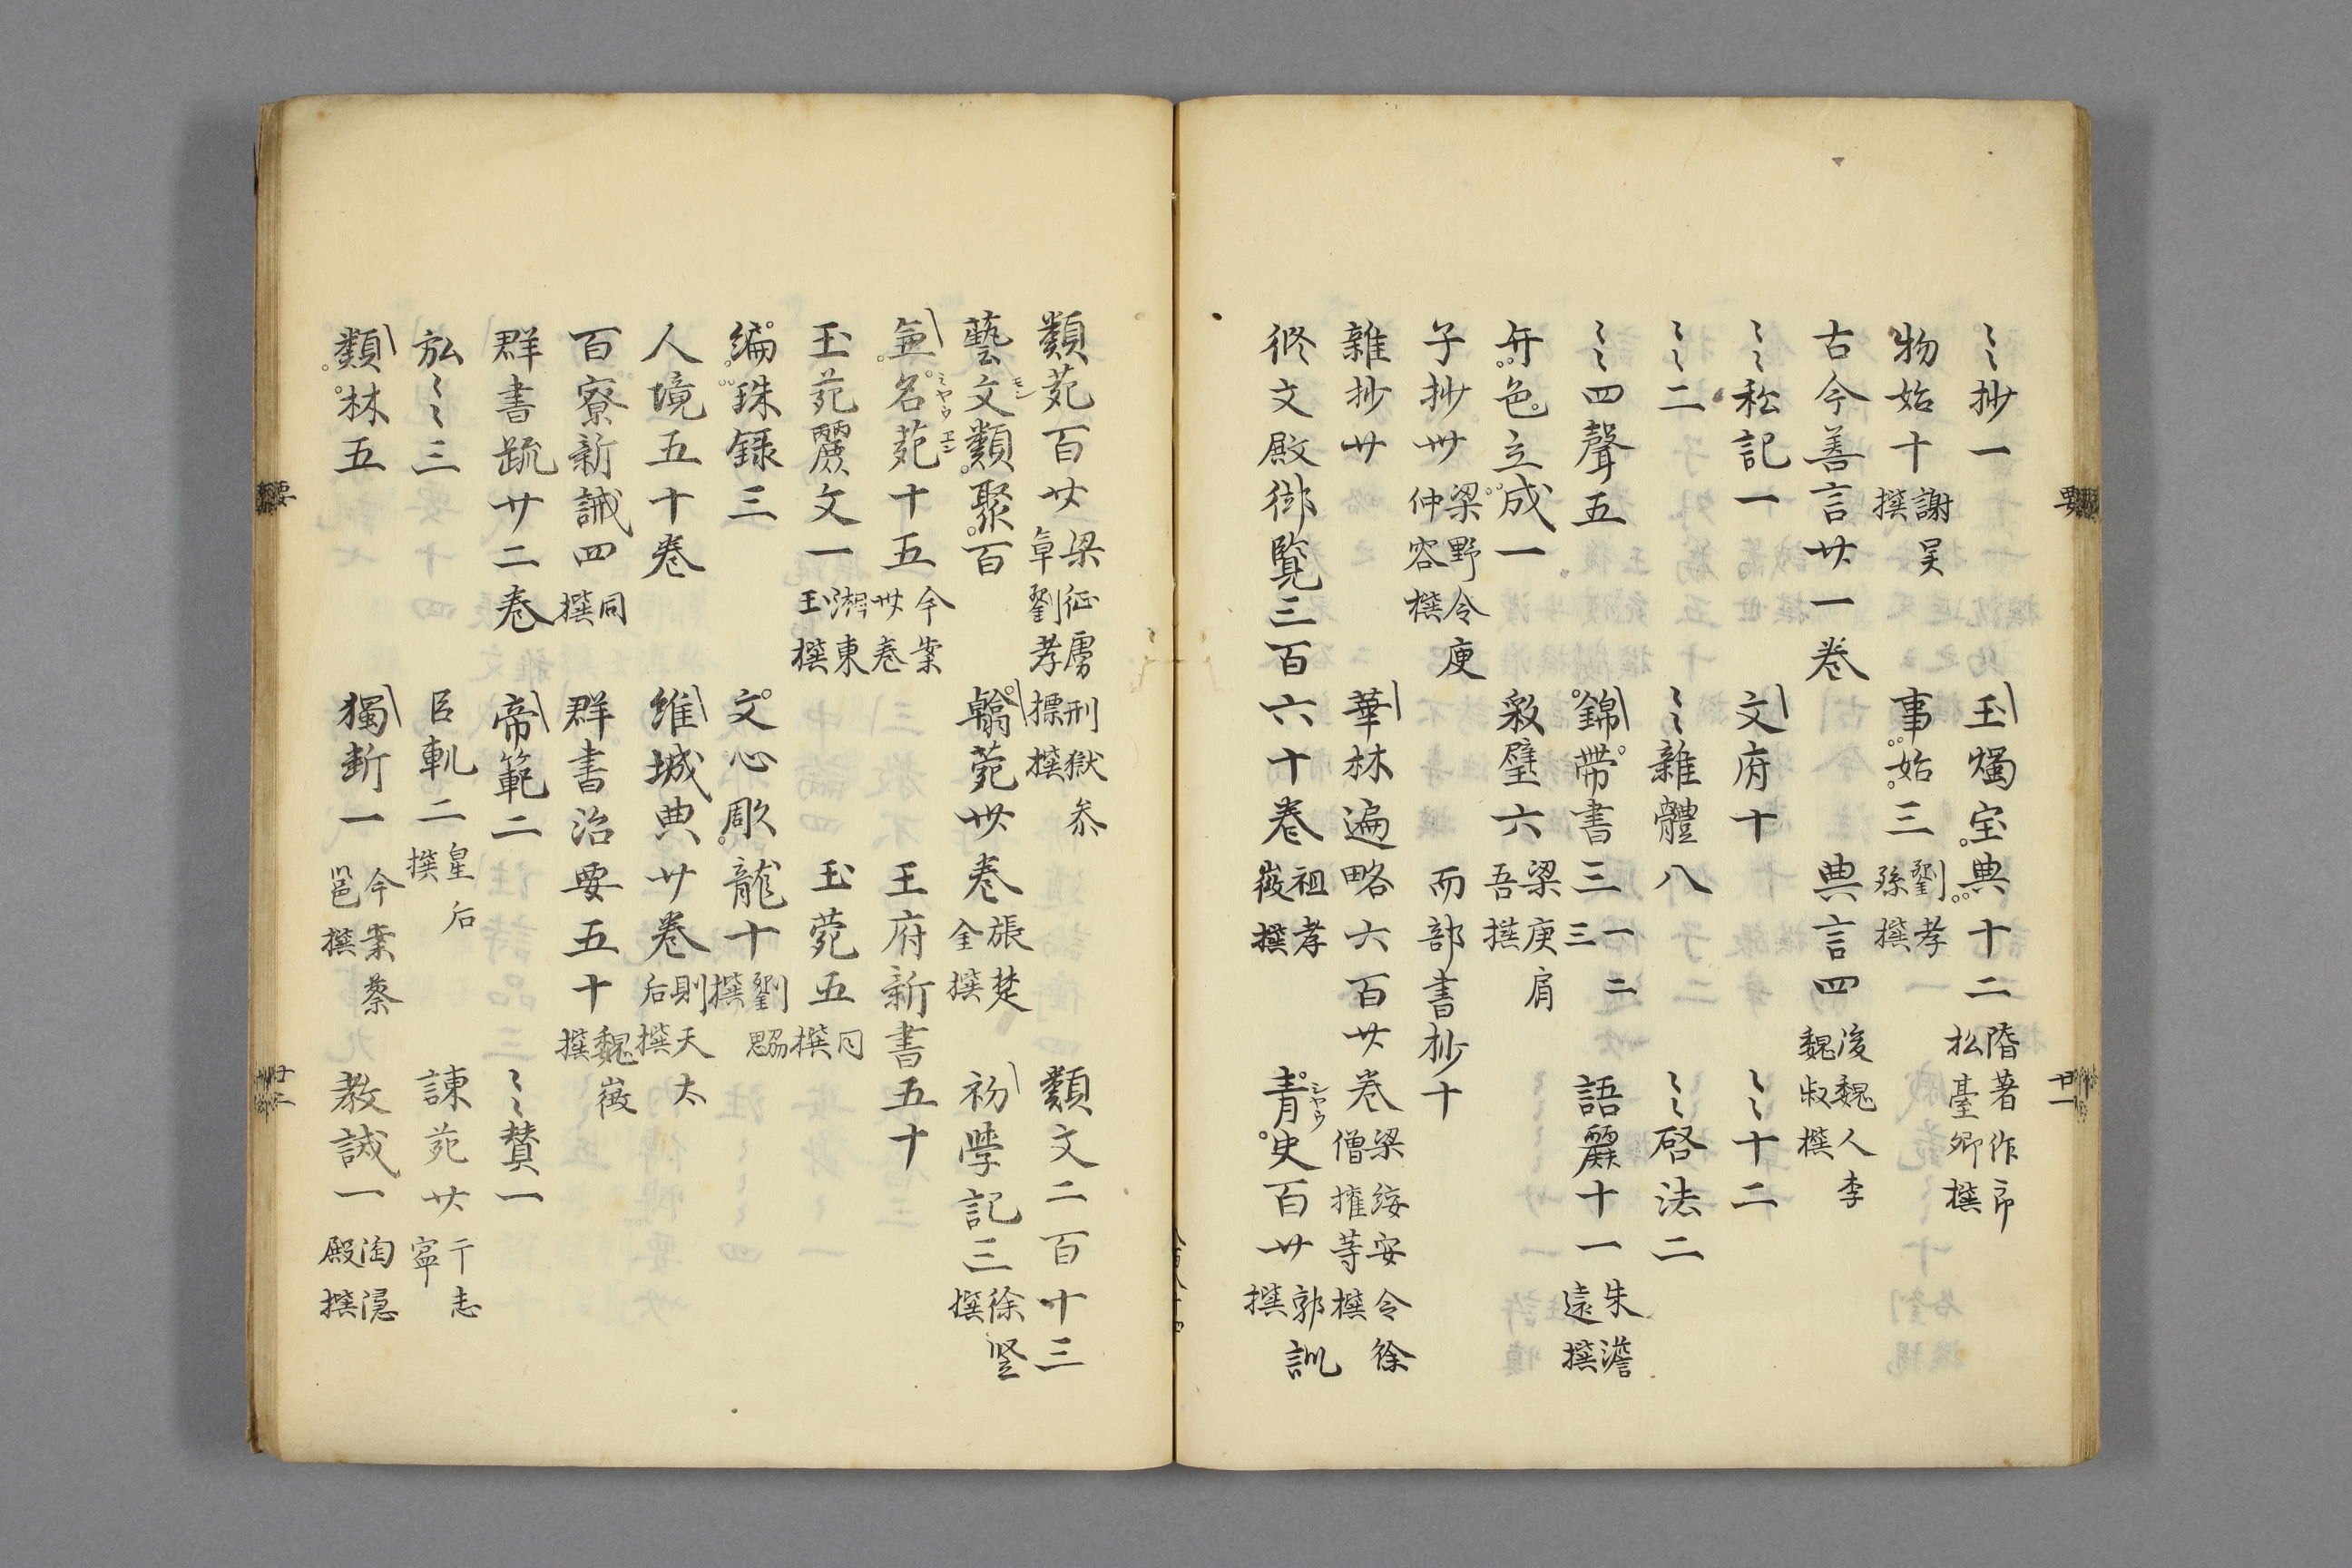 〻〻抄一 玉燭宝典十二 隋著作郎松臺卿撰
物始十 謝吴撰 事始三 劉孝孫撰
古今善言廿一巻 典言四 後魏人李魏叔撰
〻〻私記一 文府十 〻〻十二
〻〻二 〻〻雜體八 〻〻啓法二
〻〻四聲五 錦帶書三 一二三 語麗十一 朱澹遠撰
弁色立成一 叙璧六 梁庾肩吾撰
子抄卅 梁野令庾仲容撰 而部書抄十
雜抄廿 華林遍略六百廿巻 梁綏安令徐僧摧等撰
修文殿御覧三百六十巻 祖孝徴撰 青史百廿 郭訓撰 シヤウ
類苑百廿 梁征虜刑獄参 劉孝標撰 類文二百十三
藝文類聚百 モン 翰菀卅巻 張楚金撰 初學記三 徐堅撰
名苑十五 今案卅巻 ミヤウ エン 王府新書五十
玉苑麗文一 湘東王撰 玉菀五 同撰
編珠録三 文心彫龍十 劉勰撰
人境五十巻 維城典廿巻 則天太后撰
百寮新誡四 同撰 群書治要五十 魏徴撰
群書疏廿二巻 帝範二 〻〻賛一
〻〻三 臣軌二 皇后撰 諫苑廿 于志寧
類林五 獨断一 今案蔡邕撰 教誡一 淘隠殿撰
要
廿一
要
廿二